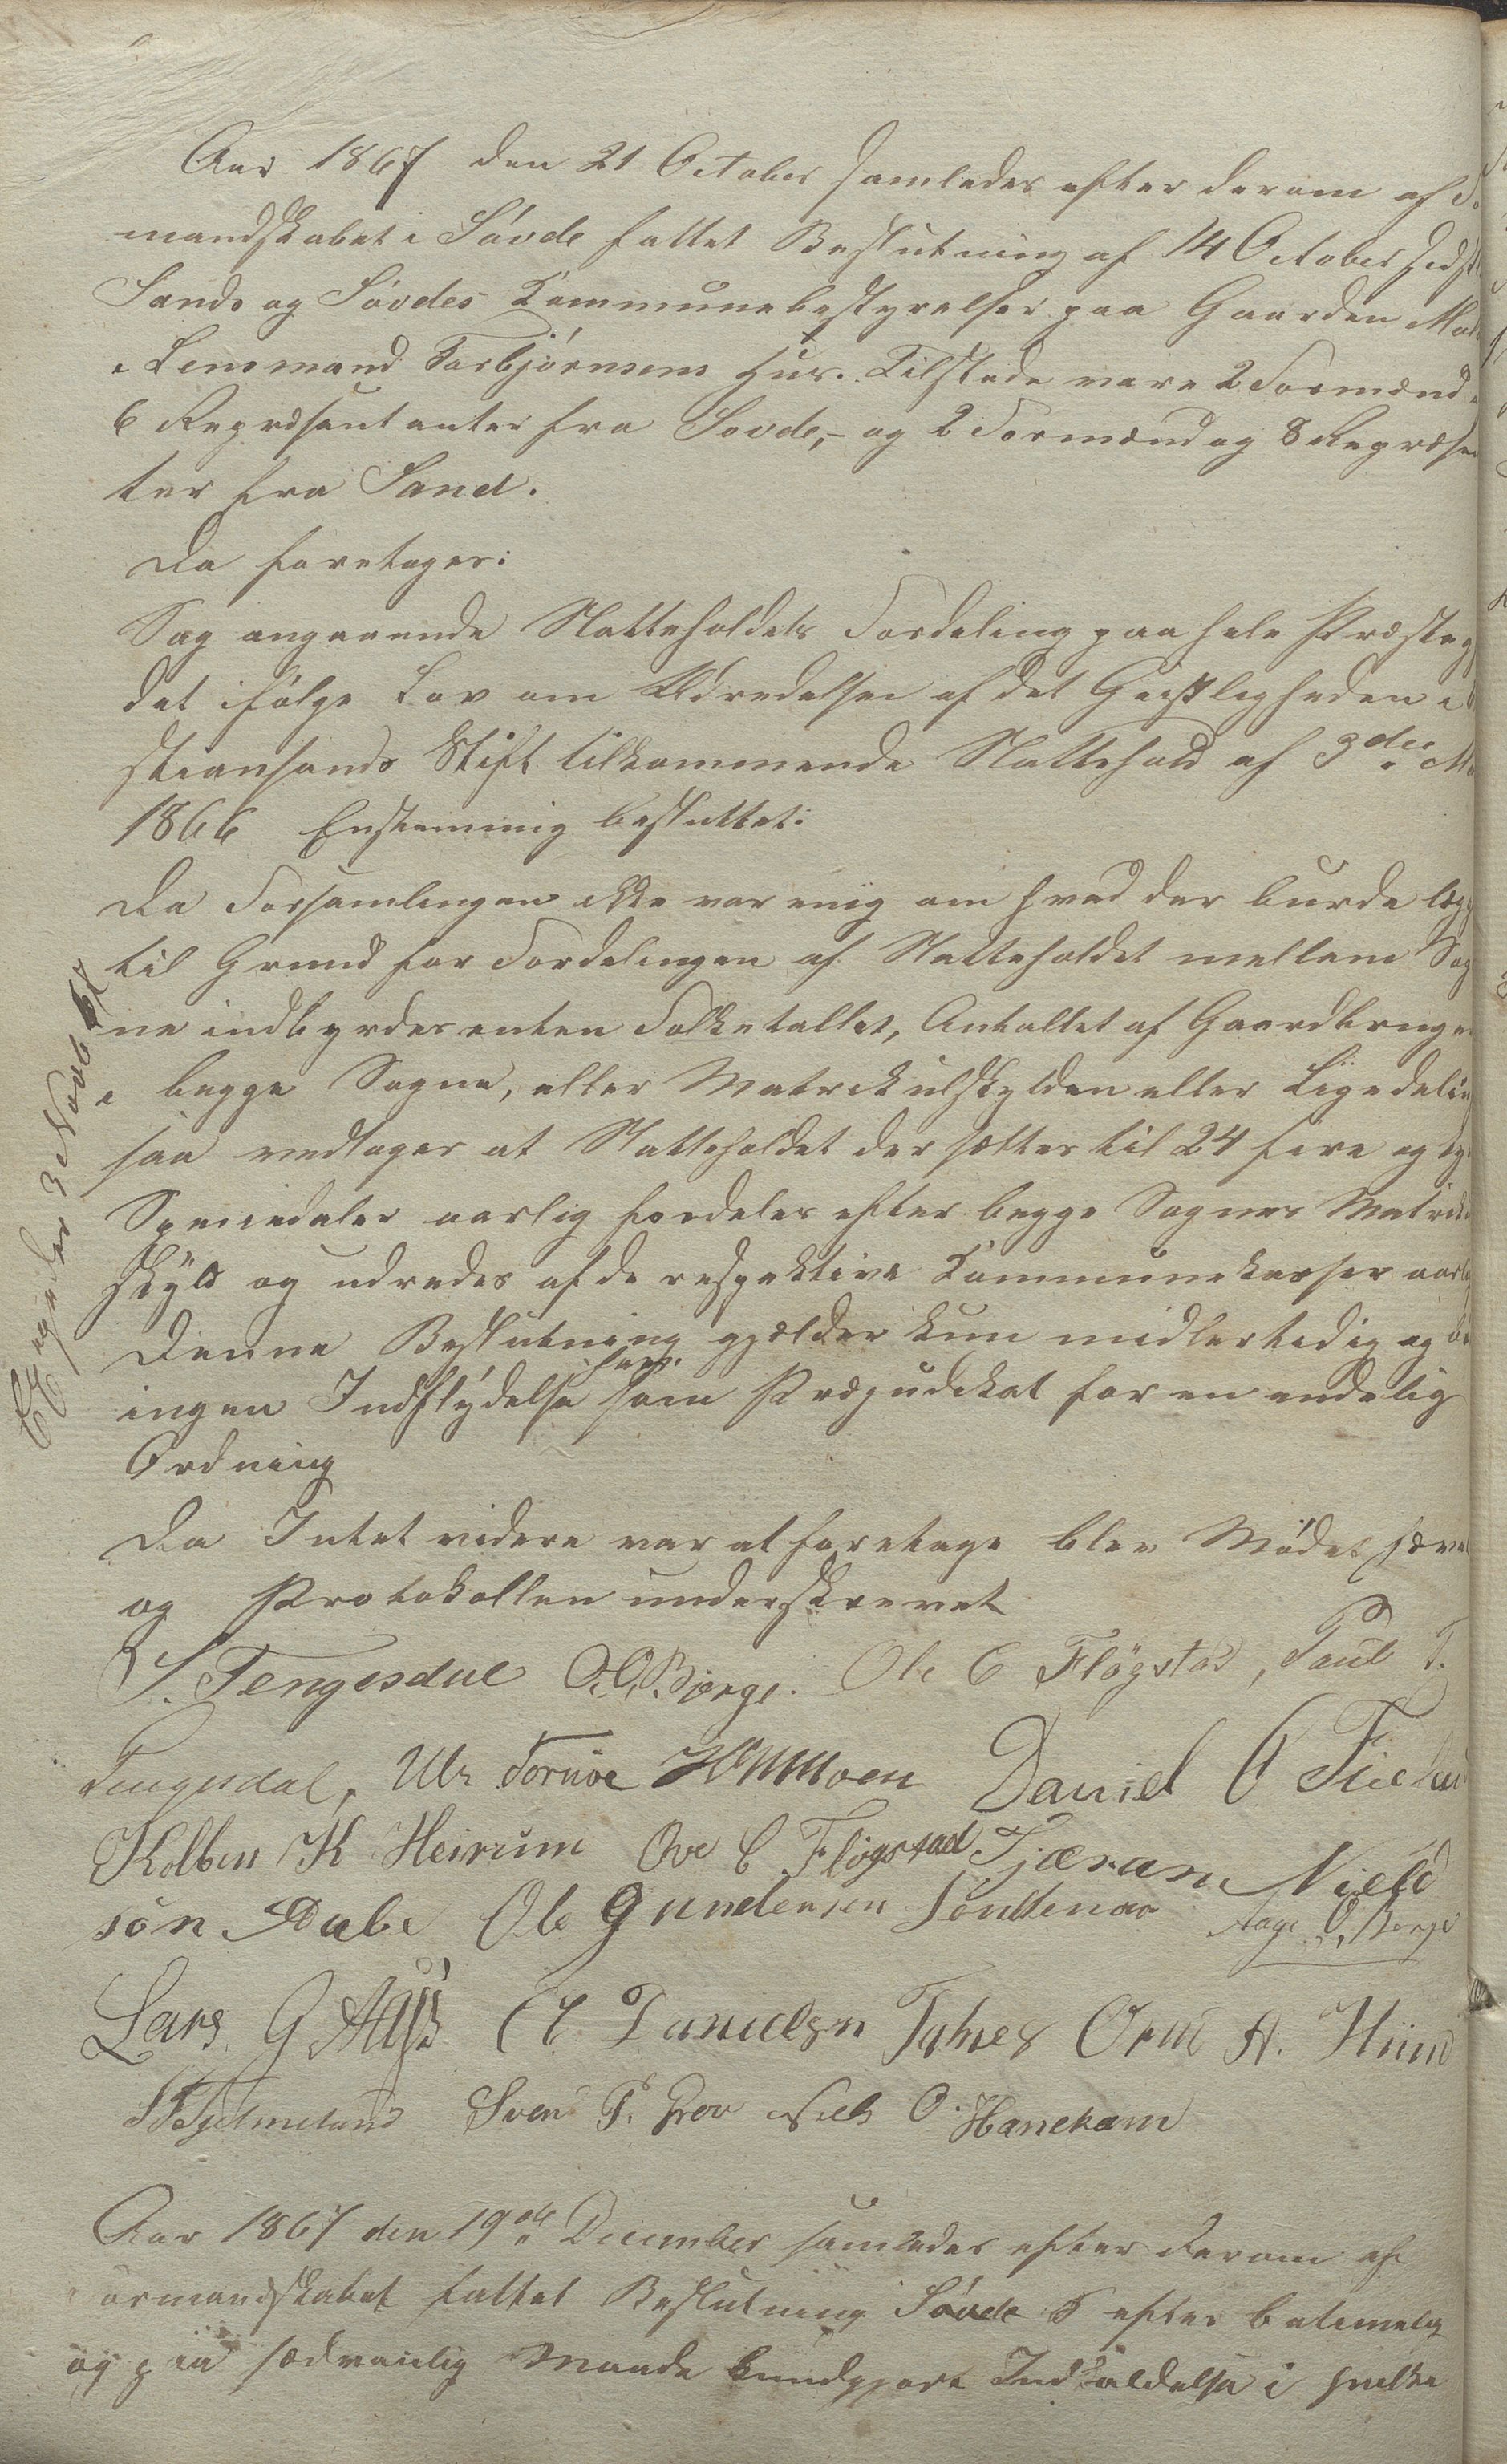 Aar 1867 den 21 October samledes efter derom af F
mandskabet i Søvde fattet Beslutning af 14 October sidstl
Sands og Søvdes Kommunebestyrelser paa Gaarden Mo
i Lensmand Torbjörnsens Huus. Tilstede vare 2 Formænd
6 Repræsentanter fra Sovde, - og 2 Formænd og 8 Repræsen
ter fra Sand.
Da foretoges:
Sag angaaende Natteholdets Fordeling paa hele Præsteg
det ifølge Lov om Udredelsen af det Geistligheden i
stiansands Stift tilkommende Nattehold af 3die M
1866 Enstemmig besluttet:
Da Forsamlingen ikke var enig om hvad der burde lægg
til Grund for Fordelingen af Natteholdet mellem Sog
ne indbyrdes enten Folketallet, Antallet af Gaardbruge
i begge Sogne, eller Matrickulskylden eller Ligedelin
saa vedtages at Natteholdet der sættes til 24 fire og ty
Speciedaler aarlig fordeles efter begge Sognes Matrick
skyld og udredes af de respektive Kommunekasser aarlig
Denne Beslutning gjælder kun midlertidig og be
ingen Indflydelse som Præjudikat for en endelig
Ordning
Da Intet videre var at foretage blev Mødet hævet
og Protokollen underskrevet
S. Tengesdal O. O. Börge. Ole C Flögstad, Paul T.
Tengesdal, Ulr Tornöe Daniel O
Kolben K Heirum Ove C Flögstad Tjæran Niels
sön Ole Gundersen Aage O, Berge
Lars G C Danielsn Orm A. Hiim
Sven P. Grov Niels O. Hanekam
Aar 1867 den 19de December samledes efter derom af
ormandskabet fattet Beslutning Søvde S efter betimelig
og paa sædvanlig Maade kundgjort Indkaldelse i hvilke